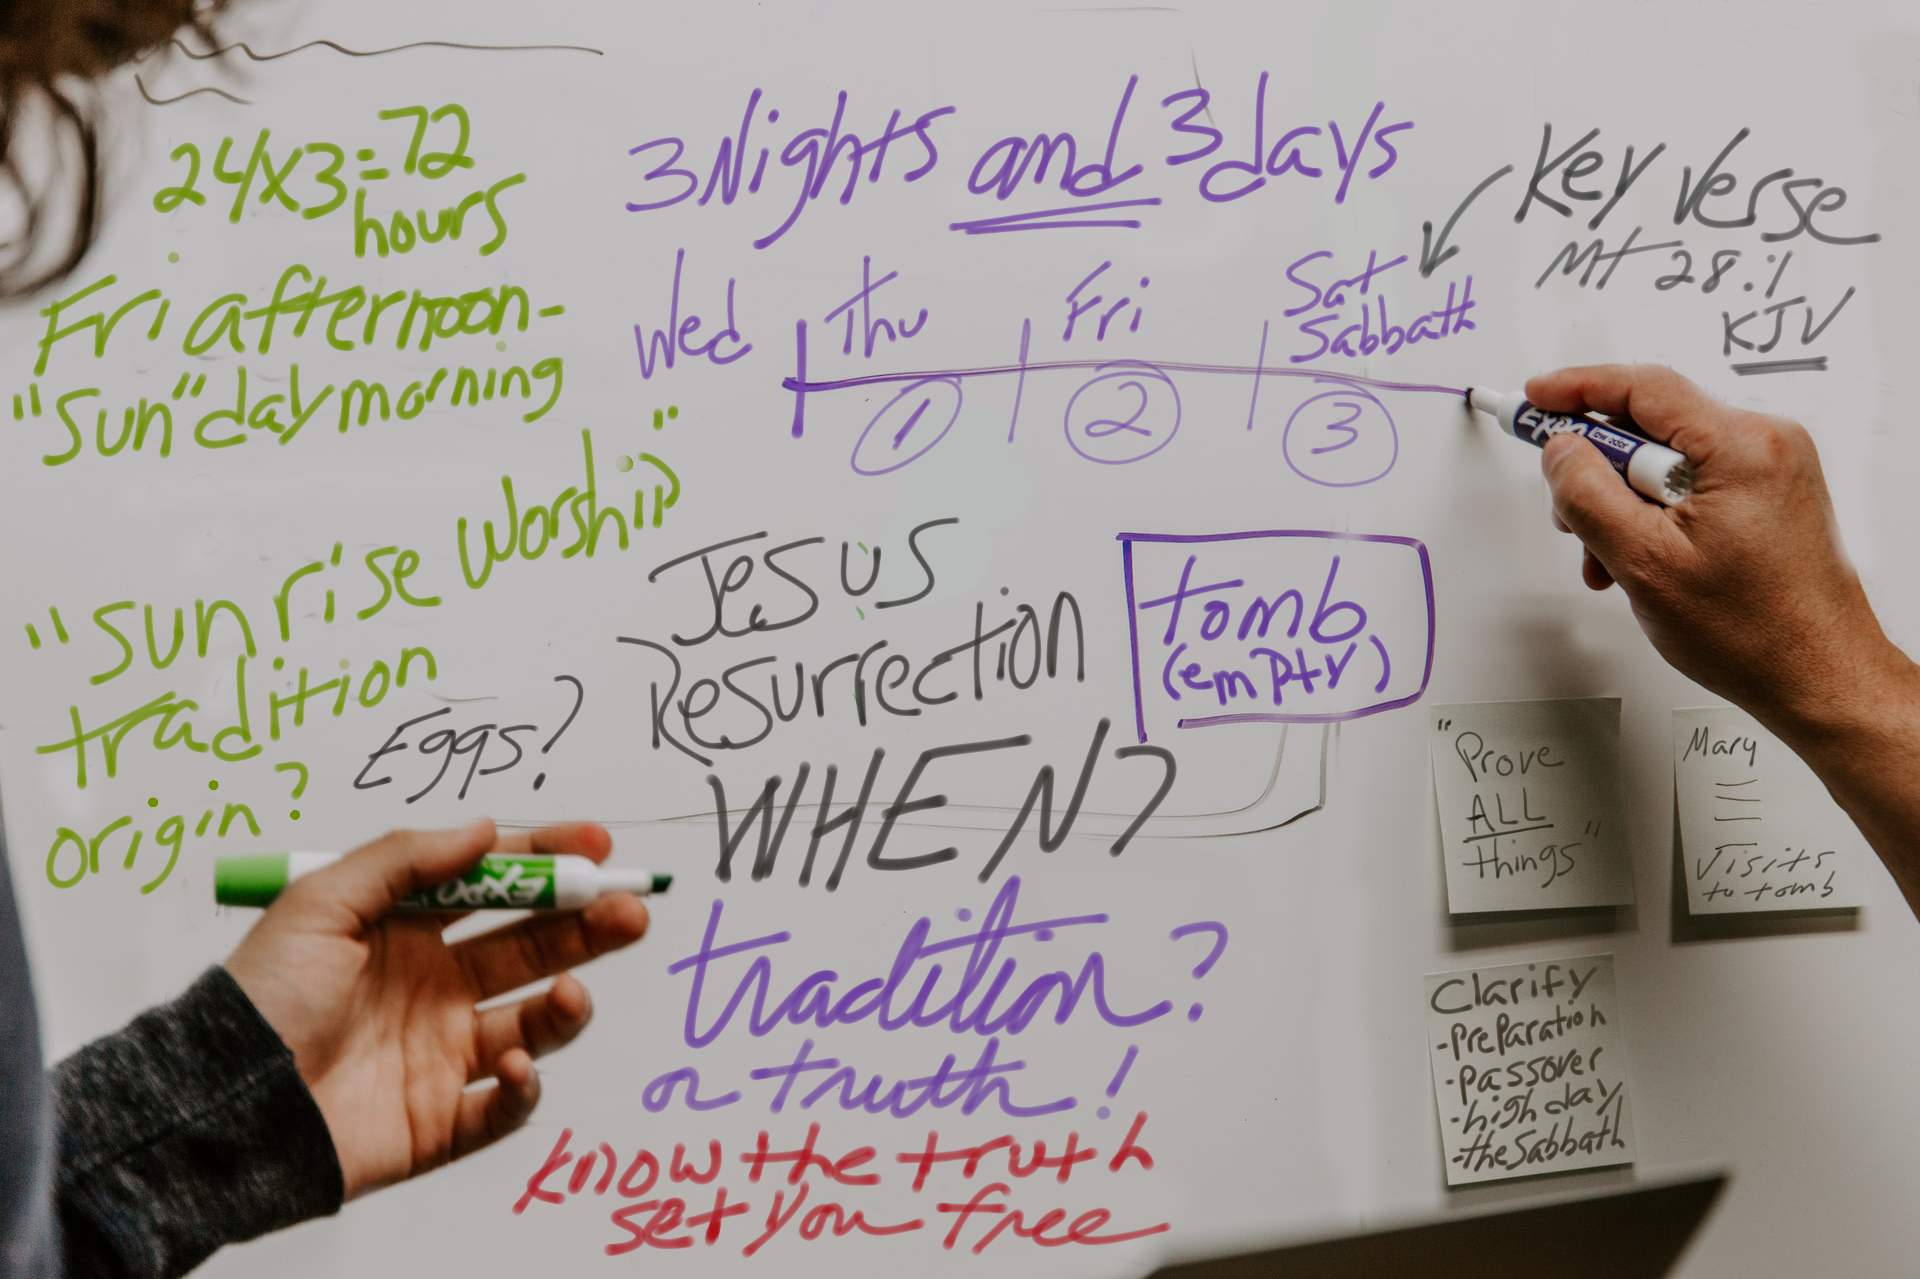 24x3=72
hours
Fri afternoon-
"Sun"day morning
"sunrise worship"
tradition
origin?
Eggs?
3 Nights and 3 days
Wed Thu Fri Sat
Sabbath
1 2 3
Key Verse
Mt 28:1
KJV
Jesus
Resurrection
WHEN?
tomb
(empty)
tradition?
or truth!
know the truth
set you free
"Prove
ALL
things"
Mary
Visits
to tomb
Clarify
-preparation
-passover
-high day
-the Sabbath
EXPO
low odor
EXPO